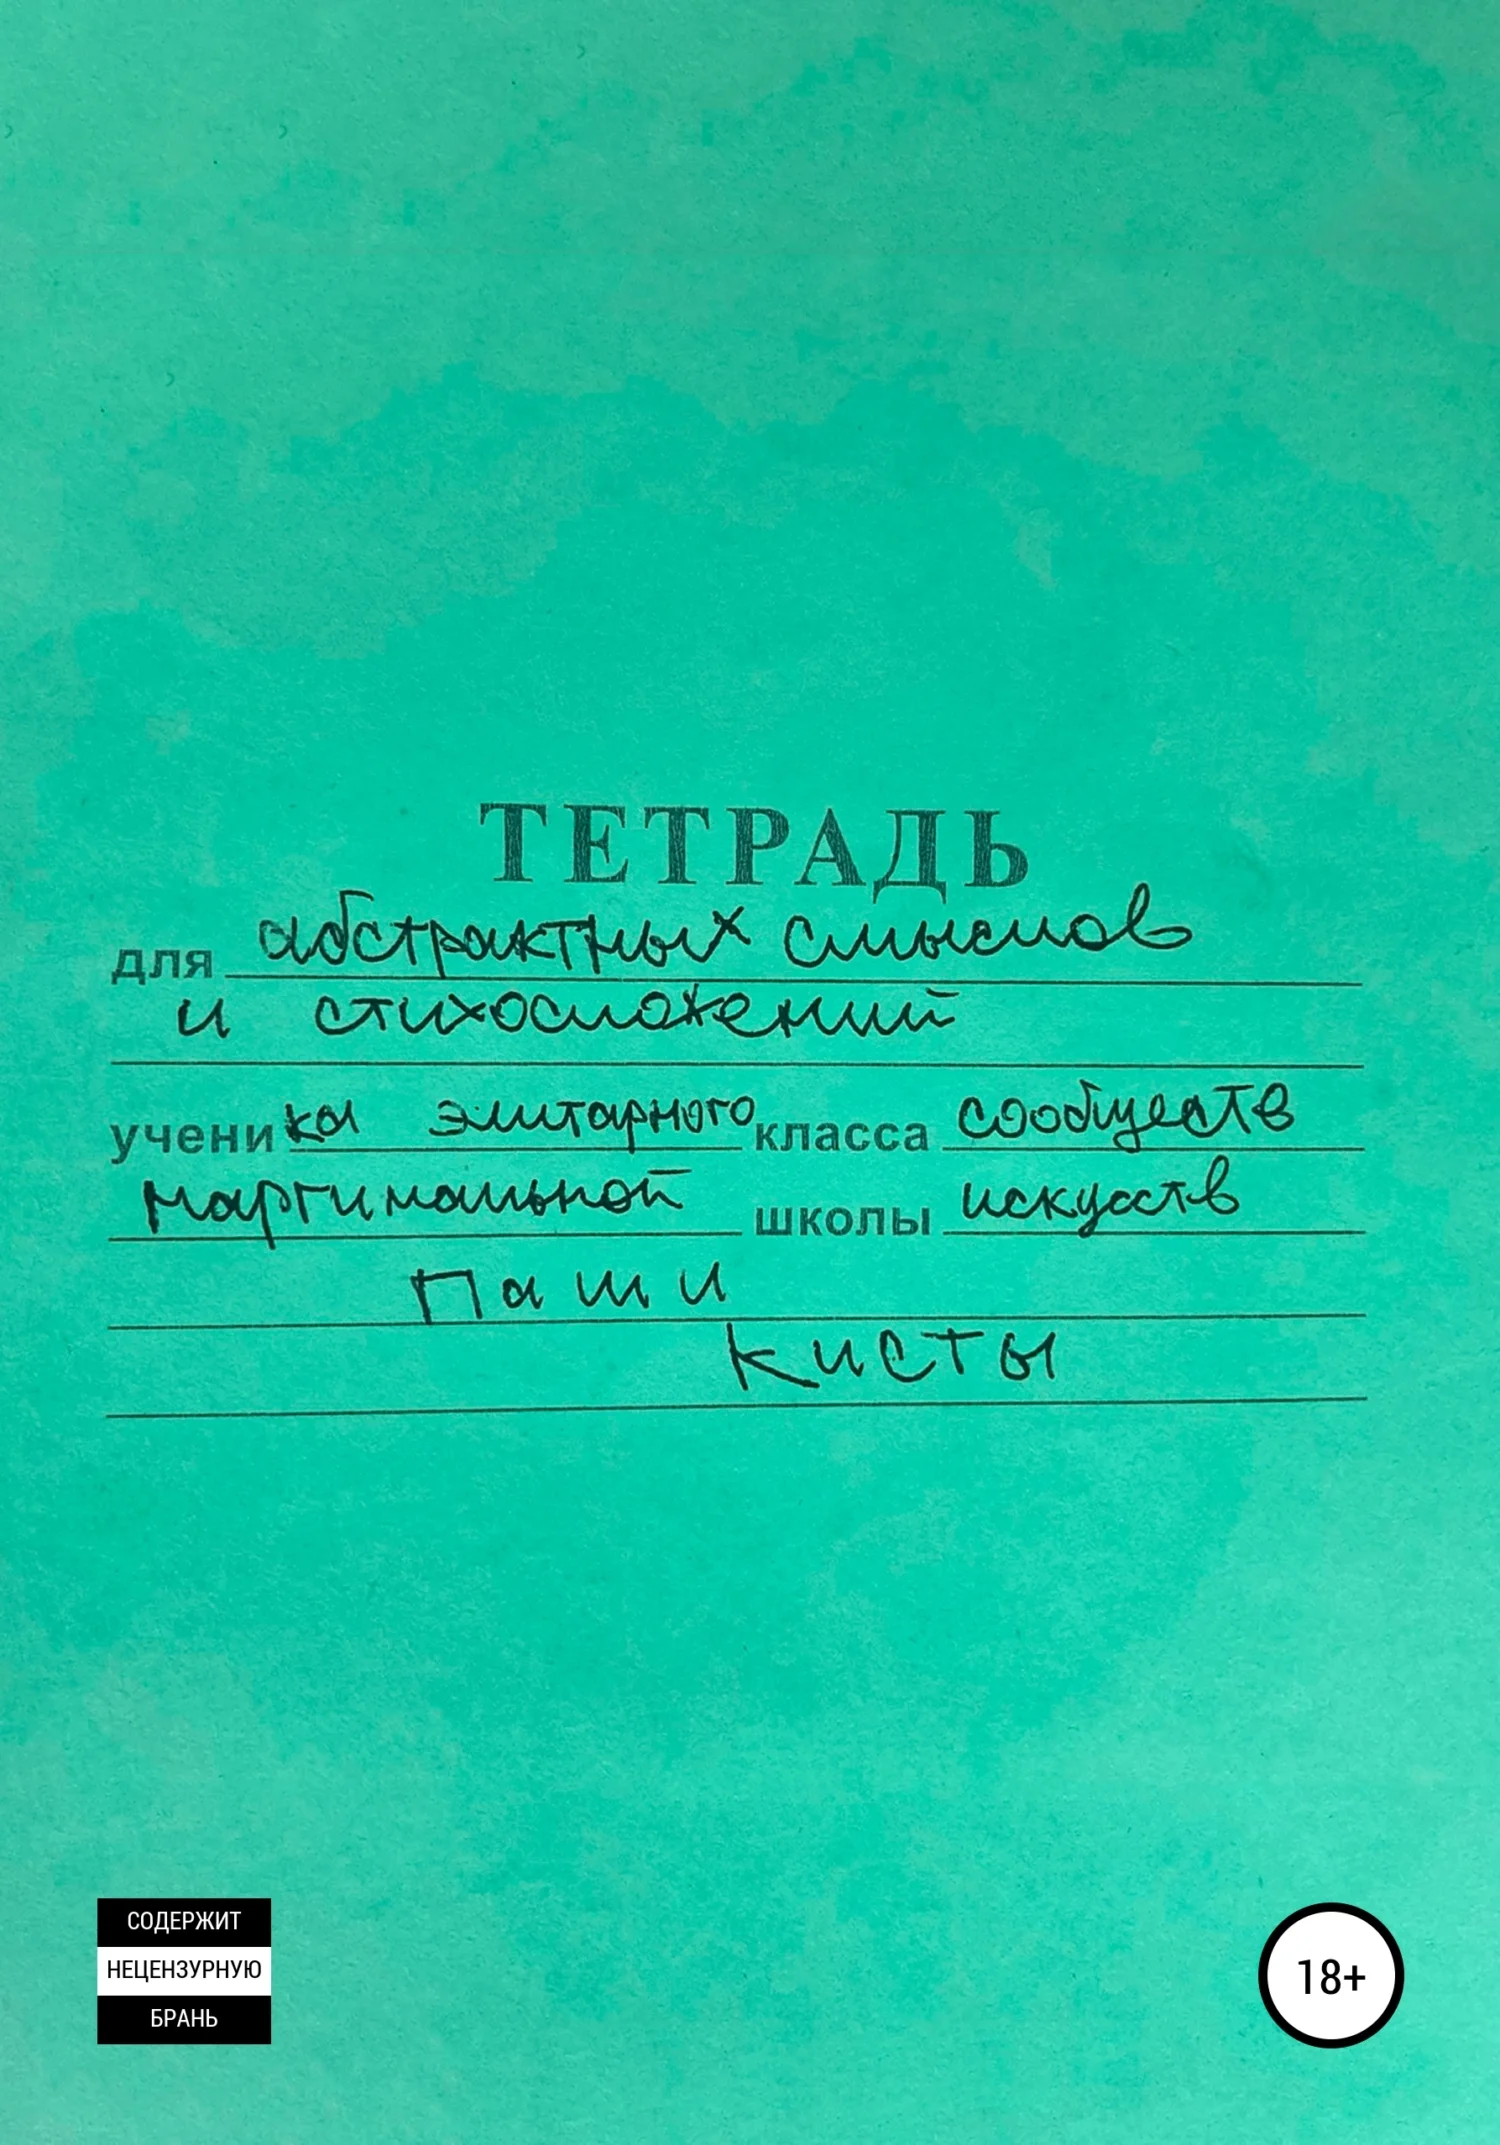 ТЕТРАДЬ
для абстрактных смыслов
и стихосложений
ученика элитарного класса сообществ
маргинальной школы искусств
Паши
Кисты
СОДЕРЖИТ
НЕЦЕНЗУРНУЮ
БРАНЬ
18+